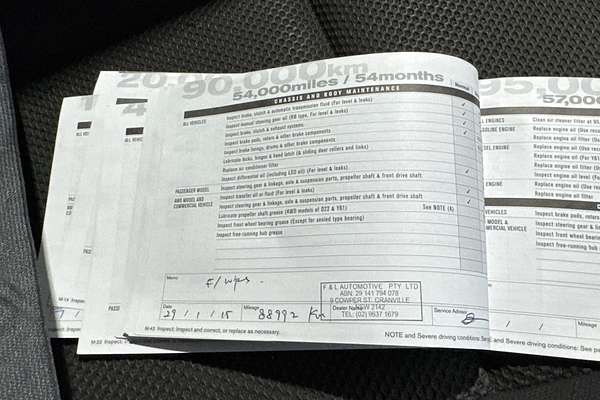 90,000km
54,000miles / 54months
CHASSIS AND BODY MAINTENANCE
ALL VEHICLES
Inspect brake, clutch & automatic transmission fluid (For level & leaks)
Inspect manual steering gear oil (RB type, For level & leaks)
Inspect brake, clutch & exhaust systems
Inspect brake pads, rotors & other brake components
Inspect brake linings, drums & other brake components
Lubricate locks, hinges & hood latch (& sliding door rollers and links)
Replace air conditioner filter
Inspect differential oil (including LSD oil) (For level & leaks)
PASSENGER MODEL
Inspect steering gear & linkage, axle & suspension parts, propeller shaft & front drive shaft
4WD MODEL AND COMMERCIAL VEHICLE
Inspect transfer oil or fluid (For level & leaks)
Inspect steering gear & linkage, axle & suspension parts, propeller shaft & front drive shaft
Lubricate propeller shaft grease (4WD models of D22 & Y61)
See NOTE (4)
Inspect front wheel bearing grease (Except for sealed type bearing)
Inspect free-running hub grease
Memo
F & L AUTOMOTIVE PTY LTD
ABN: 29 141 794 078
9 COWPER ST. GRANVILLE
NSW 2142
TEL: (02) 9637 1679
Date
29/1/15
Mileage
88992 Km
Dealer Name
Service Advisor
Inspect: Inspect and correct, or replace as necessary.
NOTE and Severe driving conditions:
95,0
57,00
Clean air cleaner filter
Replace engine oil
Replace engine oil filter
Replace engine oil
Replace engine oil
Replace engine oil filter
Inspect engine oil level
Replace engine oil
Replace engine oil filter
Inspect brake pads, rotors
Inspect steering gear &
Inspect front wheel bearing
Inspect free-running hub
Mileage
and Severe driving conditions: See